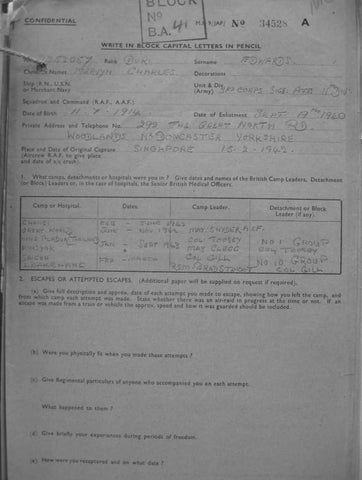 BLOCK
Nº
B.A. 41
CONFIDENTIAL
Nº 34528 A
WRITE IN BLOCK CAPITAL LETTERS IN PENCIL
Rank DVR. Surname EDWARDS
Christian Names MERVYN CHARLES Decorations
Ship (R.N., U.S.N. or Merchant Navy)
Unit & Div. (Army) 3RD CORPS SIGS
Squadron and Command (R.A.F., A.A.F.)
Date of Birth Date of Enlistment SEPT 1940
Private Address and Telephone No. 299 THE GREAT NORTH RD
WOODLANDS Nr DONCASTER YORKSHIRE
Place and Date of Original Capture SINGAPORE 15-2-1942
(Aircrew R.A.F. to give place and date of a/c crash).
1. What camps, detachments or hospitals were you in? Give dates and names of the British Camp Leaders, Detachment (or Block) Leaders or, in the case of hospitals, the Senior British Medical Officers.
Camp or Hospital. Dates. Camp Leader. Detachment or Block Leader (if any).
CHANGI FEB - JUNE 1942
GREAT WORLD JUNE - NOV 1942 MAJ. A.I.F.
COL TOOSEY NO 1 GROUP
MAJ COL TOOSEY
SAIGON FEB COL GILL NO 10 GROUP
COL GILL
2. ESCAPES OR ATTEMPTED ESCAPES. (Additional paper will be supplied on request if required).
(a) Give full description and approx. date of each attempt you made to escape, showing how you left the camp, and from which camp each attempt was made. State whether there was an air-raid in progress at the time or not. If an escape was made from a train or vehicle the approx. speed and how it was guarded should be included.
(b) Were you physically fit when you made these attempts?
(c) Give Regimental particulars of anyone who accompanied you on each attempt.
What happened to them?
(d) Give briefly your experiences during periods of freedom.
(e) How were you recaptured and on what date?